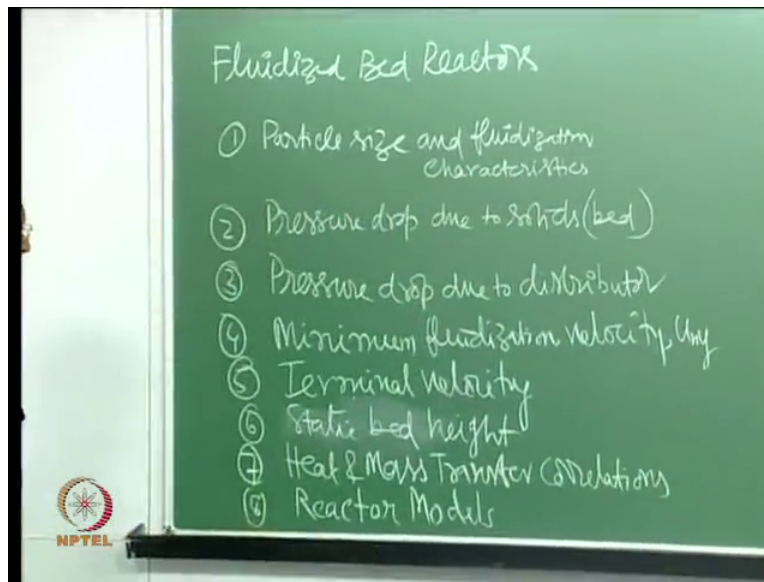 Fluidized Bed Reactors
① Particle size and fluidization
characteristics
② Pressure drop due to solids (bed)
③ Pressure drop due to distributor
④ Minimum fluidization velocity, Umf
⑤ Terminal velocity
⑥ Static bed height
⑦ Heat & Mass Transfer correlations
⑧ Reactor Models
NPTEL